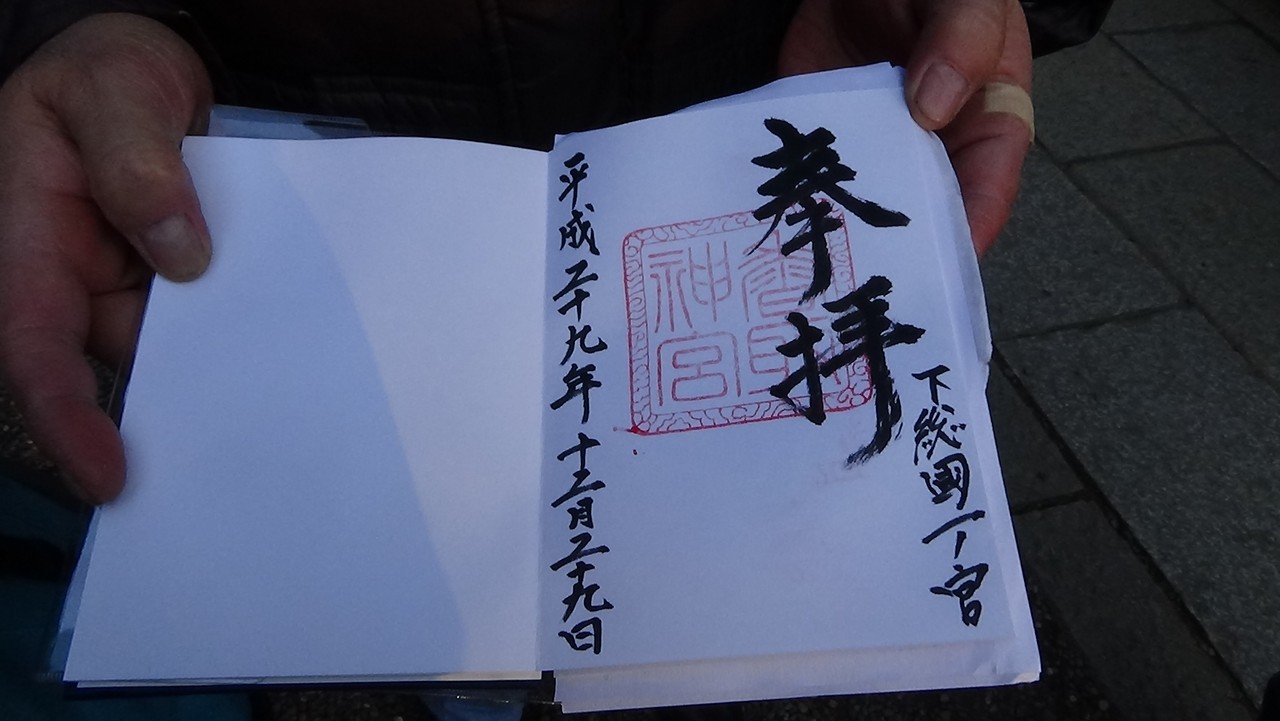 下総國一ノ宮
奉拝
香取
神宮
平成二十九年十二月二十九日